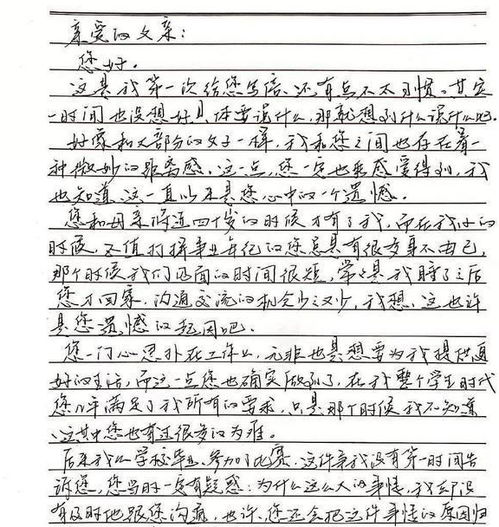 亲爱的父亲：
您好。
这是我第一次给您写信，还有点不太习惯。其实
一时间也没想好具体要说什么，那就想到什么说什么吧。
好像和大部分的父子一样，我和您之间也存在着一
种微妙的距离感，这一点，您一定也能感受得到，我
也知道，这一直以来是您心中的一个遗憾。
您和母亲将近四个岁的时候才有了我，而在我小的
时候，正值打拼事业年纪的您总是有很多身不由己，
那个时候我们见面的时间很短，常常是我睡了之后
您才回家，沟通交流的机会少之又少，我想，这也许
是您遗憾的起因吧。
您一门心思扑在工作上，无非也是想要为我提供更
好的生活，而这一点您也确实做到了，在我整个学生时代
您几乎满足了我所有的要求，只是那个时候我不知道
这其中您也有过很多的为难。
后来我从学校毕业，参加了比赛，这件事我没有第一时间告
诉您，您当时一定有疑惑：为什么这么大的事情，我却没
有及时地跟您沟通，也许，您还会把这件事情的原因归